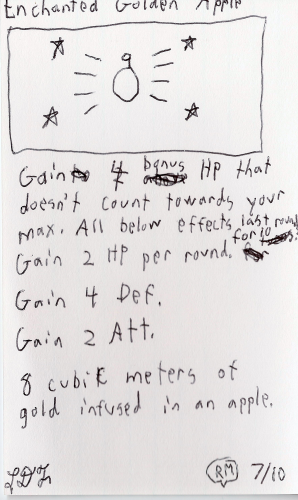 Enchanted Golden Apple
Gain 4 bonus HP that
doesn't count towards your
max. All below effects last
for 10 rounds.
Gain 2 HP per round.
Gain 4 Def.
Gain 2 Att.
8 cubic meters of
gold infused in an apple.
RM 7/10